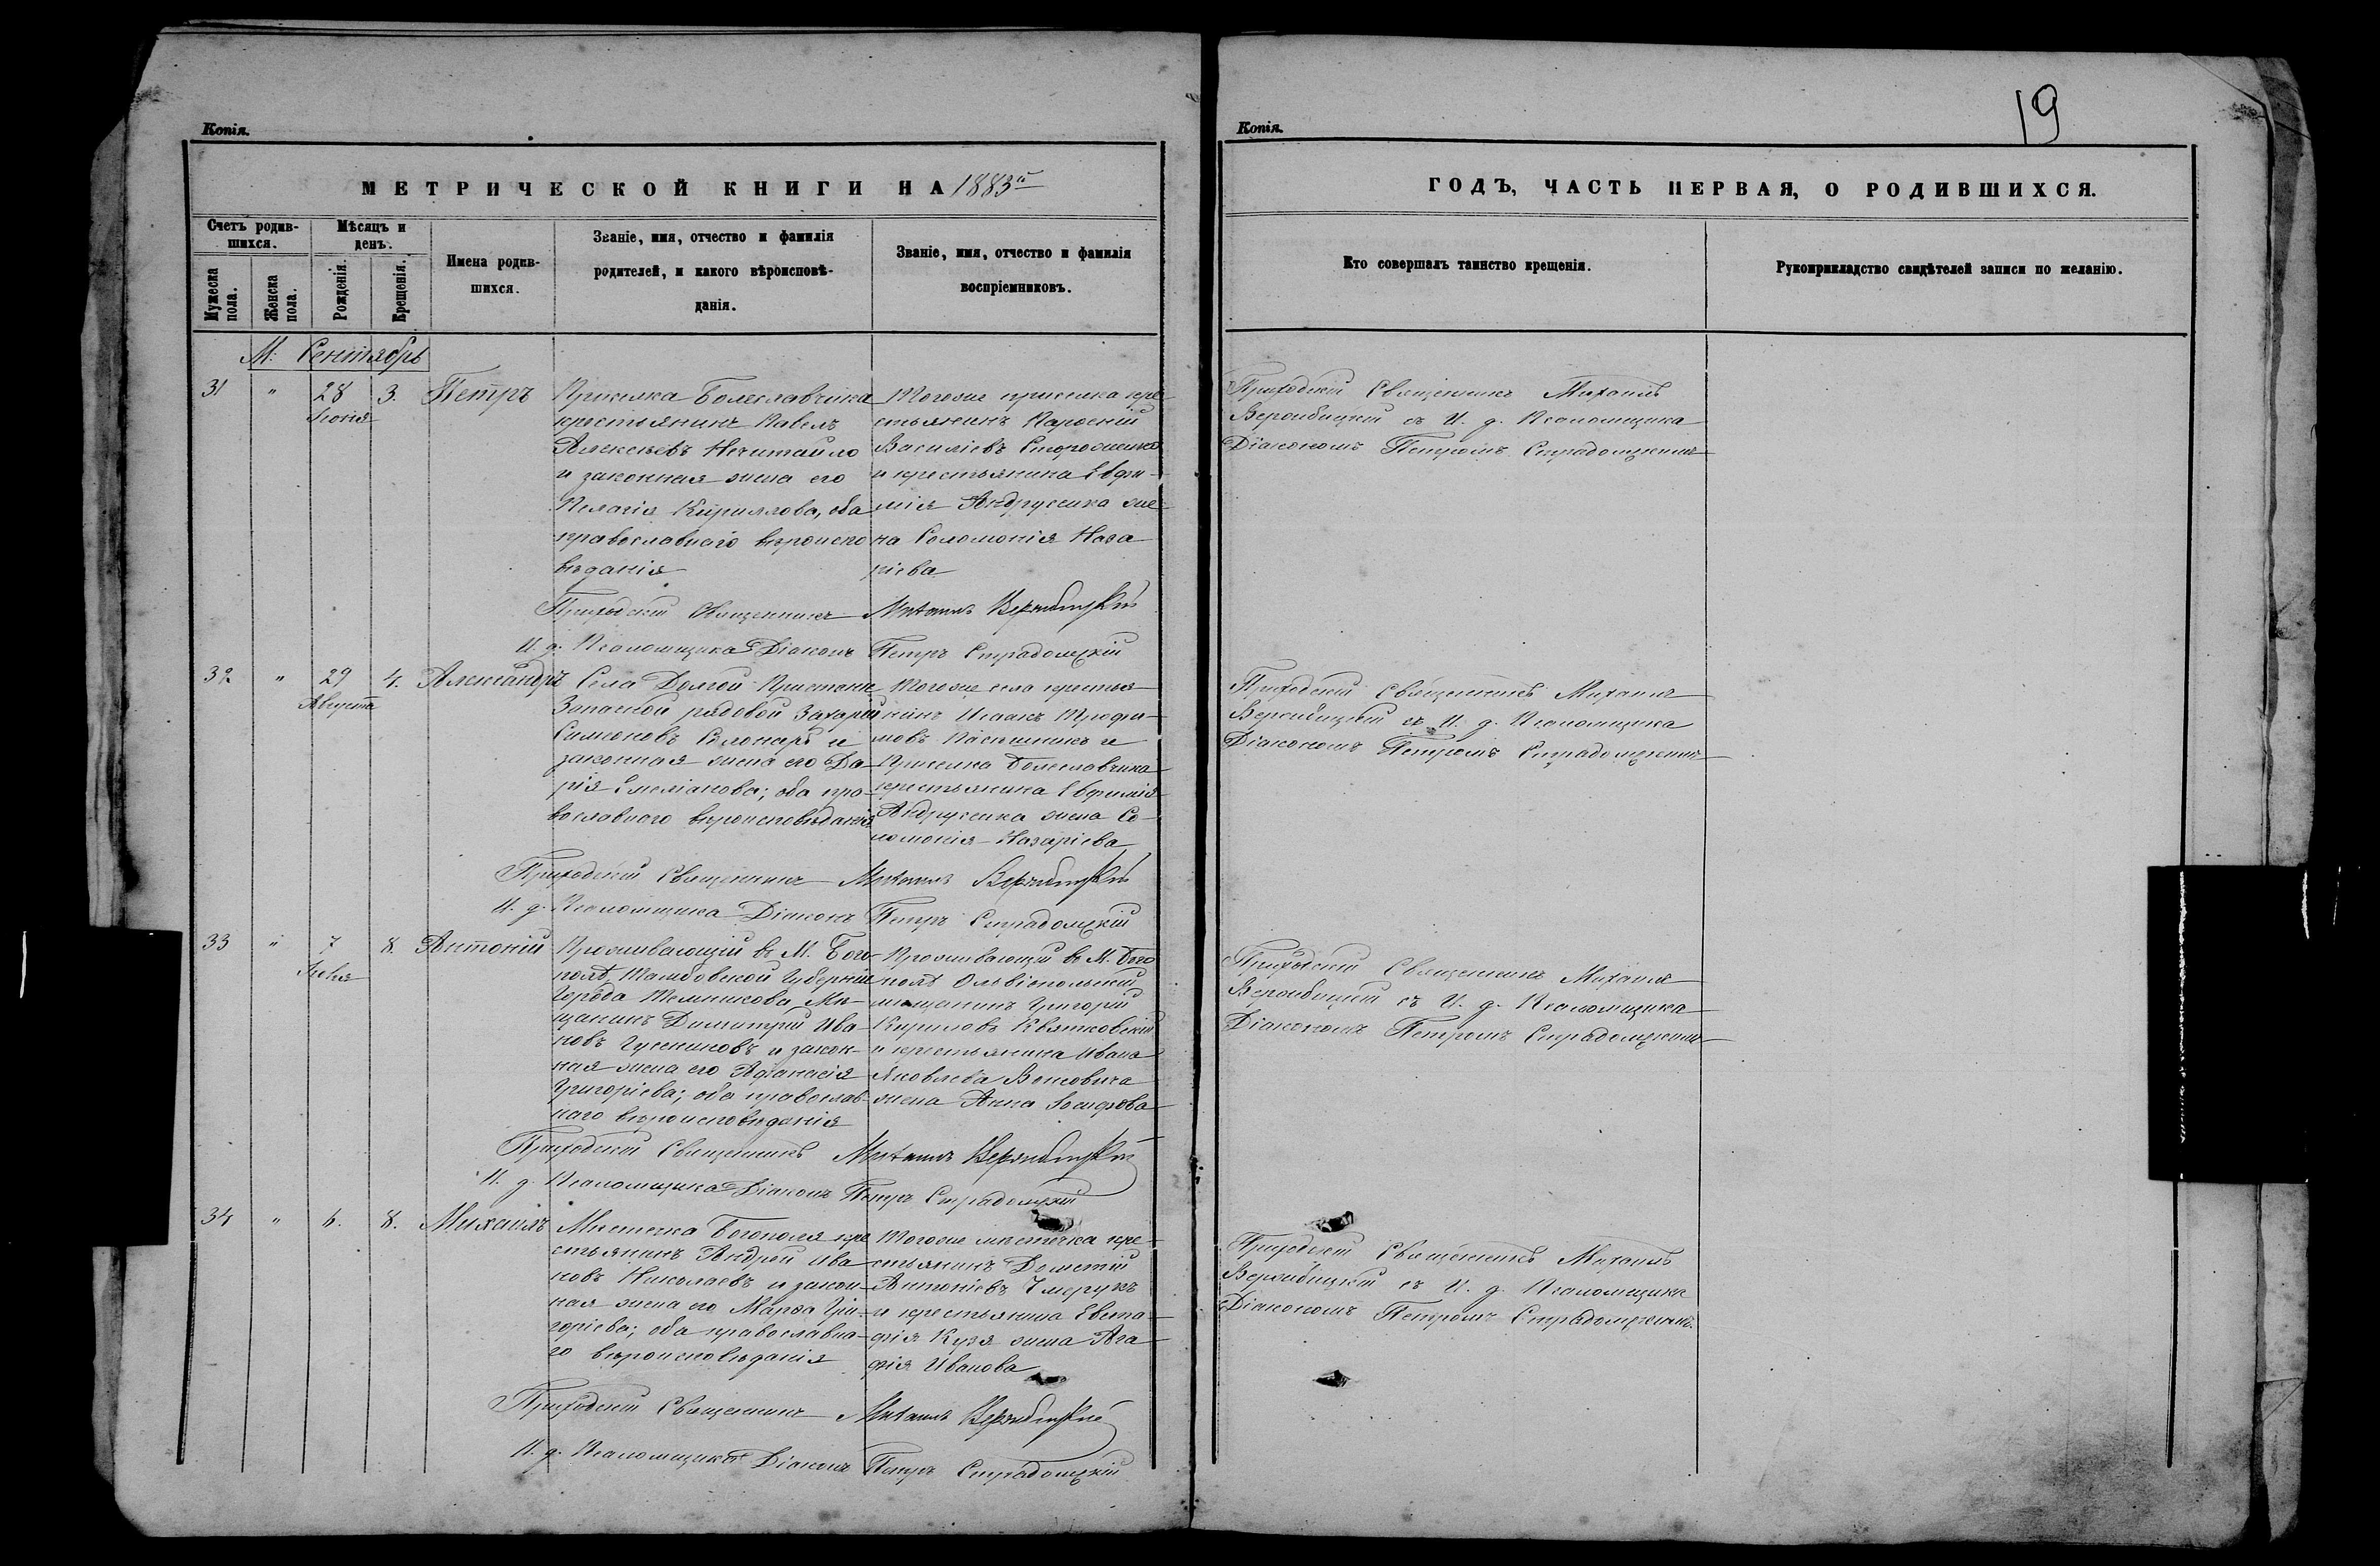 Копія.
МЕТРИЧЕСКОЙ КНИГИ НА 1883й
Счетъ родив-
шихся.
Мужеска
пола.
Женска
пола.
Мѣсяцъ и
день.
Рожденія.
Крещенія.
Имена родив-
шихся.
Званіе, имя, отчество и фамилія
родителей, и какого вѣроисповѣ-
данія.
Званіе, имя, отчество и фамилія
воспріемниковъ.
М. Сентябрь
31 " 28 3. Петръ
Приселка Болеславчика
крестьянинъ Павелъ
Алексѣевъ Нечитайло
и законная жена его
Пелагія Кириллова, оба
православнаго вѣроиспо
вѣданія
Тогоже приселка кре-
стьянинъ
Василіевъ Стороженко
и крестьянина Евфи-
мія Андрусика же-
на Соломонія Наза
ріева
Приходскій Священникъ Михаилъ Вержбицкій
И. д. Псаломщика Діаконъ Петръ Страдомскій
32 " 29 4. Александръ
Августа
Села Долгой Пристани
Запасной рядовой Захарій
Симеоновъ и
законная жена его Да-
рія Емеліанова; оба пра-
вославнаго вѣроисповѣданія
Тогоже села крестья-
нинъ Исаакъ Трофи-
мовъ Пасѣшникъ и
Приселка Болеславчика
крестьянина Евфимія
Андрусика жена Со-
ломонія Назаріева
Приходскій Священникъ Михаилъ Вержбицкій
И. д. Псаломщика Діаконъ Петръ Страдомскій
33 " 7 8. Антоній
Проживающій въ М. Бого-
полѣ Тамбовской Губерніи
Города Темникова Мѣ-
щанинъ Димитрій Ива-
новъ Гусениковъ и закон-
ная жена его Афанасія
Григоріева; оба православ-
наго вѣроисповѣданія
Проживающій въ М. Бого
полѣ Ольвіопольскій
мѣщанинъ Григорій
Кириловъ Квятковскій
и крестьянина Ивана
Яковлева Войсовича
жена Анна Іосифова
Приходскій Священникъ Михаилъ Вержбицкій
И. д. Псаломщика Діаконъ Петръ Страдомскій
34 " 6. 8. Михаилъ
Мѣстечка Богополя кре
стьянинъ Андрей Ива
новъ Николаевъ и закон-
ная жена его Марѳа Гри-
горіева; оба православна-
го вѣроисповѣданія
Тогоже мѣстечка кре-
стьянинъ Дометій
Антоніевъ Чмерукъ
и крестьянина Евста-
фія Кузя жена Ага-
фія Иванова
Приходскій Священникъ Михаилъ Вержбицкій
И. д. Псаломщика Діаконъ Петръ Страдомскій
Копія.
19
ГОДЪ, ЧАСТЬ ПЕРВАЯ, О РОДИВШИХСЯ.
Кто совершалъ таинство крещенія.
Рукоприкладство свидѣтелей записи по желанію.
Приходскій Священникъ Михаилъ
Вержбицкій съ И. д. Псаломщика
Діакономъ Петромъ Страдомскимъ
Приходскій Священникъ Михаилъ
Вержбицкій съ И. д. Псаломщика
Діакономъ Петромъ Страдомскимъ
Приходскій Священникъ Михаилъ
Вержбицкій съ И. д. Псаломщика
Діакономъ Петромъ Страдомскимъ
Приходскій Священникъ Михаилъ
Вержбицкій съ И. д. Псаломщика
Діакономъ Петромъ Страдомскимъ.